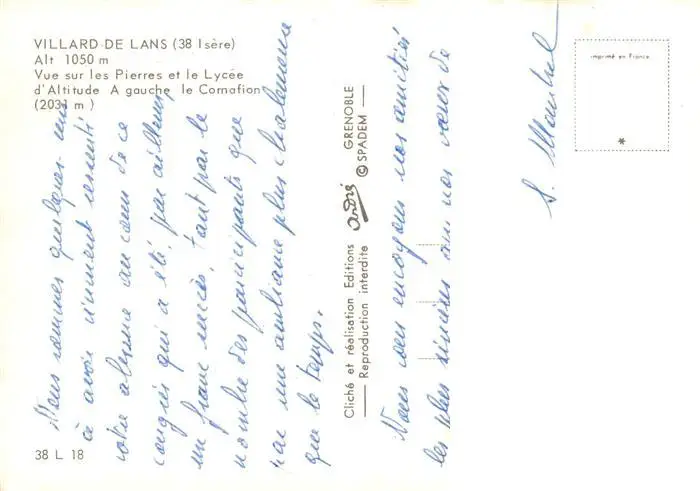 VILLARD DE LANS (38 Isère)
Alt 1050 m
Vue sur les Pierres et le Lycée
d'Altitude A gauche le Cornafion
(2031 m)
Nous sommes quelques-uns
à avoir vivement ressenti
votre absence au cours de ce
congrès qui a été, par ailleurs,
un franc succès, tant par le
nombre des participants que
par une ambiance plus chaleureuse
que le temps.
Nous vous envoyons nos amitiés
les plus sincères avec nos vœux de
Cliché et réalisation Editions André GRENOBLE
Reproduction interdite © SPADEM
imprimé en France
*
38 L 18